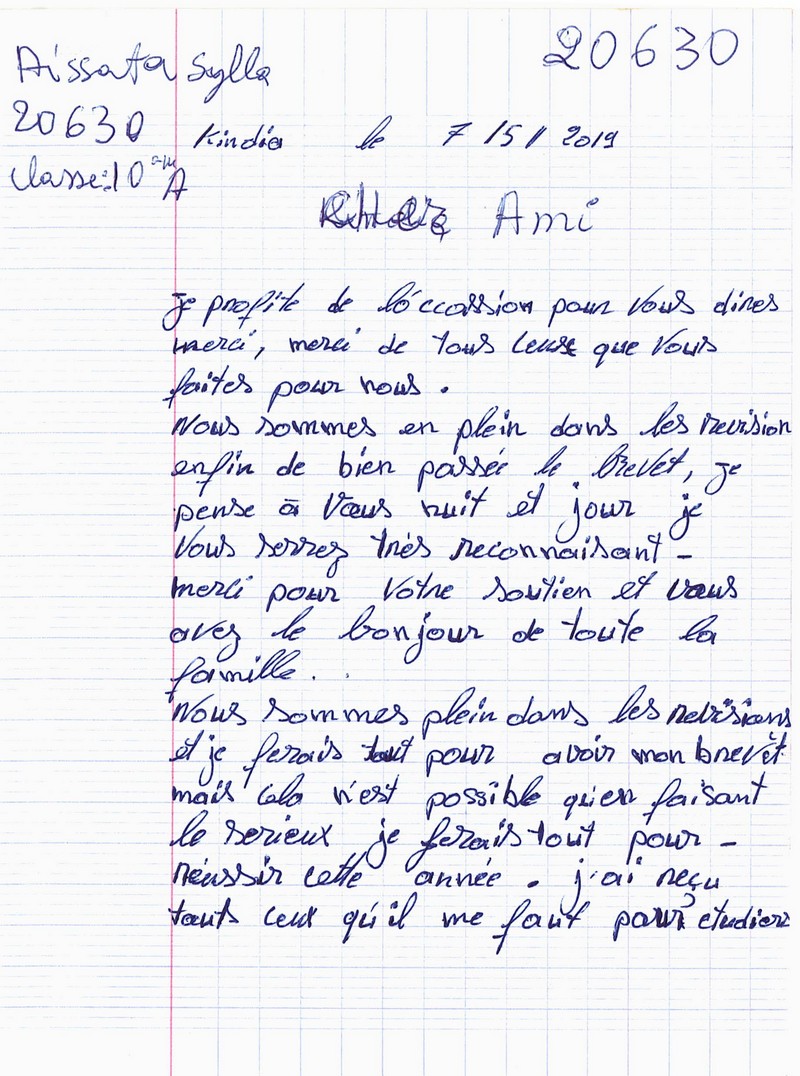 20630
Aissata Sylla
20630
Kindia le 7/5/2019
Classe:10ème A
Ami
je profite de l'óccassion pour vous dires
merci, merci de tous ceux que vous
faites pour nous.
Nous sommes en plein dans les revision
enfin de bien passée le brevet, je
pense à vous nuit et jour je
vous serrez très reconnaisant -
merci pour votre soutien et vous
avez le bonjour de toute la
famille.
Nous sommes plein dans les revisions
et je ferais tout pour avoir mon brevèt
mais cela n'est possible qu'en faisant
le serieux je ferais tout pour -
réussir cette année. j'ai reçu
touts ceux qu'il me faut pour etudier